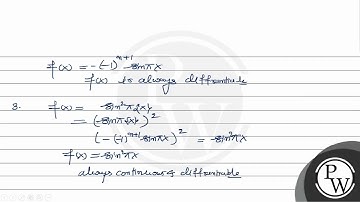 f(x) = -(-1)^{n+1} sinπx
f(x) is always diffrentiable
3. f(x) = sin²π{x}
= (sinπ{x})²
(-(-1)^{n+1} sinπx)² = sin²πx
f(x) = sin²πx
always continuous & diffrentiable
PW